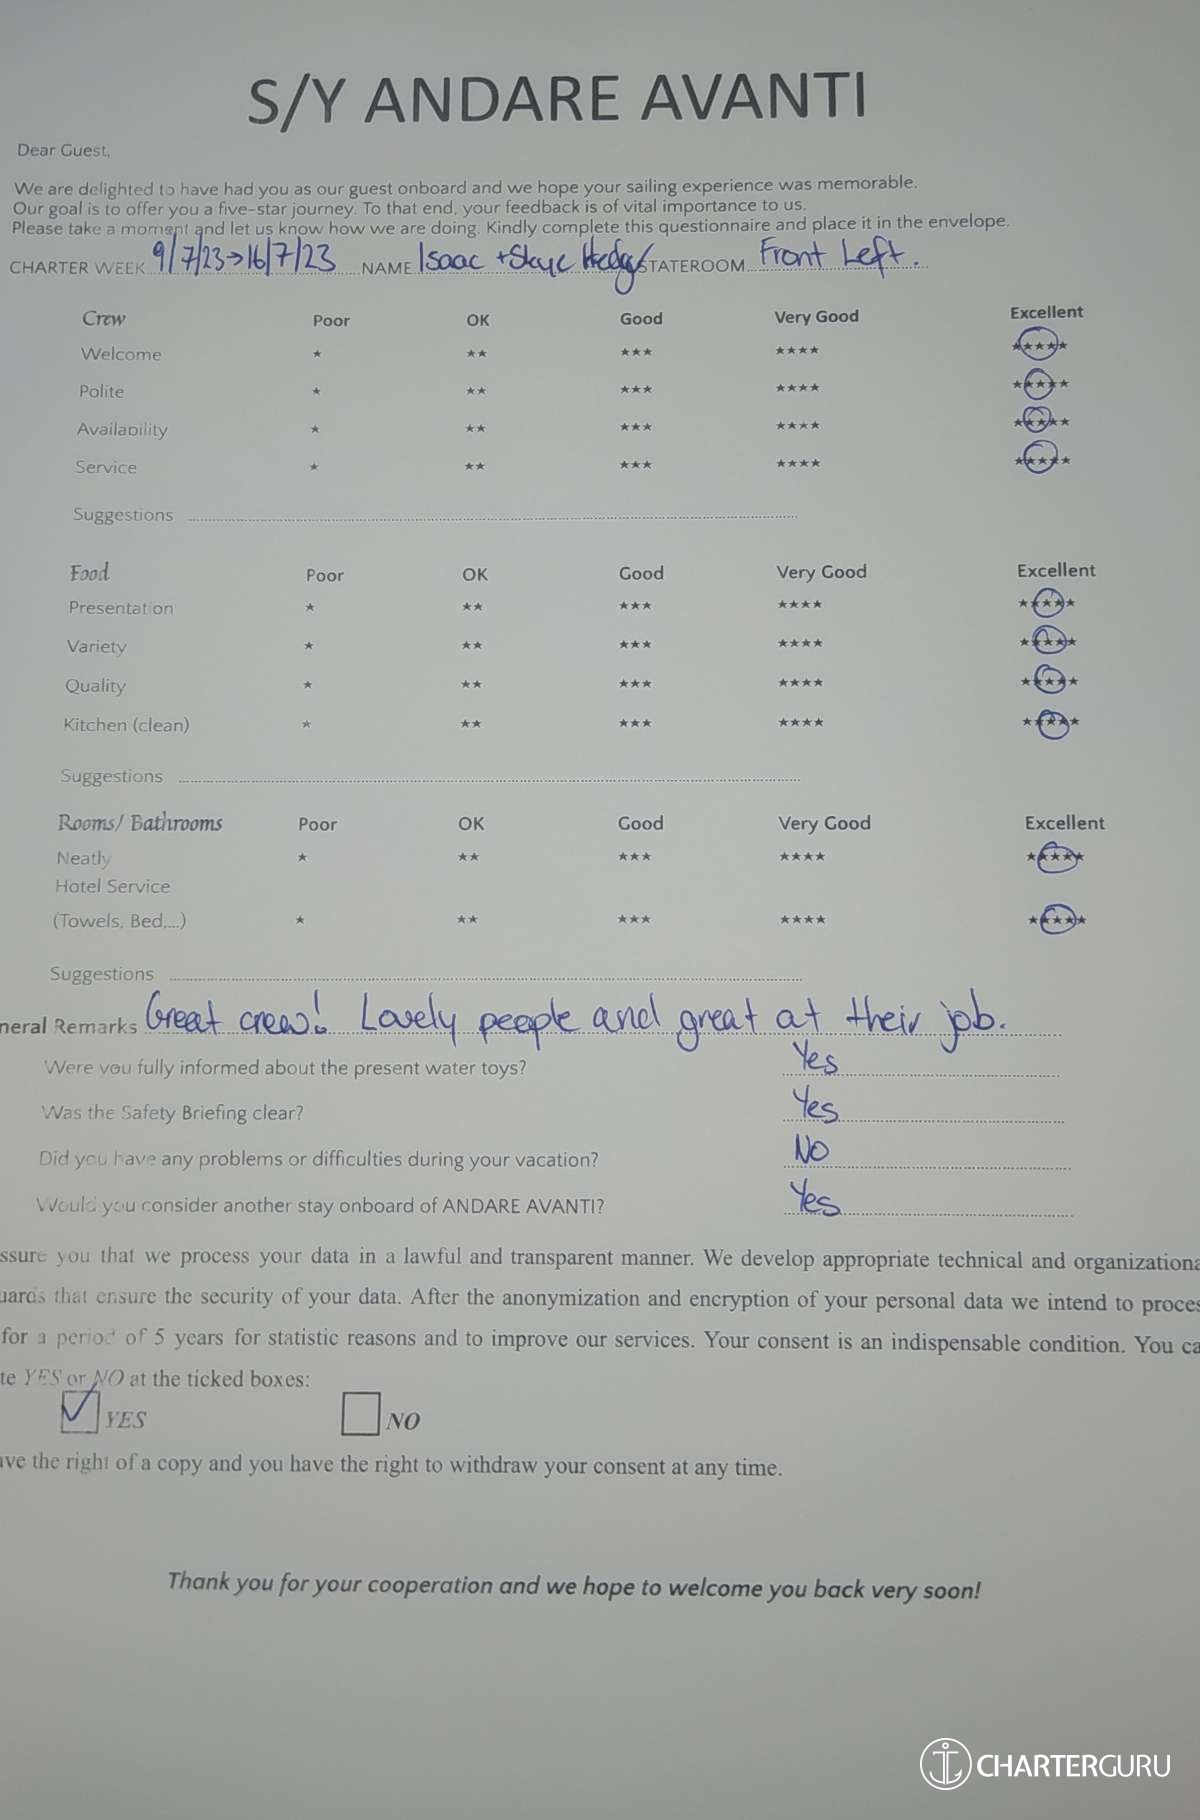 S/Y ANDARE AVANTI
Dear Guest,
We are delighted to have had you as our guest onboard and we hope your sailing experience was memorable.
Our goal is to offer you a five-star journey. To that end, your feedback is of vital importance to us.
Please take a moment and let us know how we are doing. Kindly complete this questionnaire and place it in the envelope.
CHARTER WEEK 9/7/23→16/7/23 NAME Isaac + Skye STATEROOM Front Left.
Crew Poor OK Good Very Good Excellent
Welcome ★ ★★ ★★★ ★★★★ ★★★★★
Polite ★ ★★ ★★★ ★★★★ ★★★★★
Availability ★ ★★ ★★★ ★★★★ ★★★★★
Service ★ ★★ ★★★ ★★★★ ★★★★★
Suggestions
Food Poor OK Good Very Good Excellent
Presentation ★ ★★ ★★★ ★★★★ ★★★★★
Variety ★ ★★ ★★★ ★★★★ ★★★★★
Quality ★ ★★ ★★★ ★★★★ ★★★★★
Kitchen (clean) ★ ★★ ★★★ ★★★★ ★★★★★
Suggestions
Rooms/ Bathrooms Poor OK Good Very Good Excellent
Neatly ★ ★★ ★★★ ★★★★ ★★★★★
Hotel Service
(Towels, Bed,...) ★ ★★ ★★★ ★★★★ ★★★★★
Suggestions
neral Remarks Great crew! Lovely people and great at their job.
Were you fully informed about the present water toys? Yes
Was the Safety Briefing clear? Yes
Did you have any problems or difficulties during your vacation? No
Would you consider another stay onboard of ANDARE AVANTI? Yes
ssure you that we process your data in a lawful and transparent manner. We develop appropriate technical and organizationa
uards that ensure the security of your data. After the anonymization and encryption of your personal data we intend to proces
for a period of 5 years for statistic reasons and to improve our services. Your consent is an indispensable condition. You ca
te YES or NO at the ticked boxes:
✓ YES NO
ve the right of a copy and you have the right to withdraw your consent at any time.
Thank you for your cooperation and we hope to welcome you back very soon!
CHARTERGURU